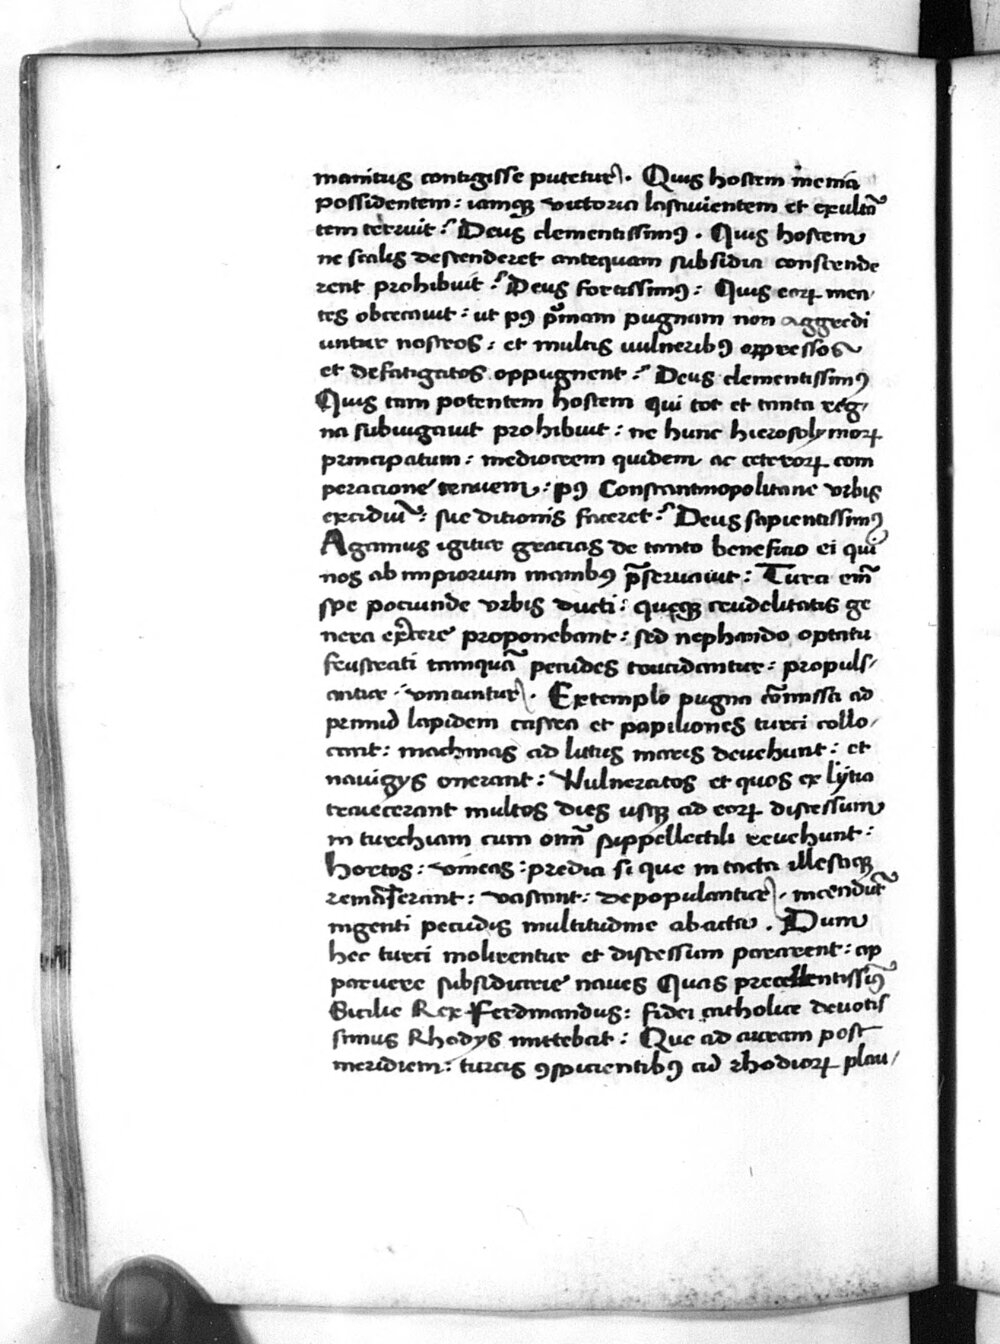 manitus contigisse putetur. Quis hostem me᷑nia
possidentem: iamqꝫ victoria lasciuientem et exultā
tem terruit: Deus clementissimꝰ. Quis hostem
ne scalis descenderet antequam subsidia conscende
rent prohibuit: Deus fortissimꝰ: Quis eoꝝ men
tes obcecauit: ut pꝰ pͥmam pugnam non aggredi
untur nostros: et multis uulneribꝰ oppressos
et defatigatos oppugnent: Deus clementissimꝰ
Quis tam potentem hostem qui tot et tanta reg/
na subiugauit prohibuit: ne hunc hierosolymoꝝ
principatum: mediocrem quidem ac ceteroꝝ com
peracione tenuem: pꝰ Constantinopolitane vrbis
excidiū: sue ditionis faceret: Deus sapientissimꝰ
Agamus igitur gracias de tanto beneficio ei qui
nos ab impiorum manibꝰ p̄seruauit: Turci em̄
spe pociunde vrbis ducti: queqꝫ crudelitatis ge
nera exͬcere proponebant: sed nephando optatu
frustrati tamquā pecudes trucidantur: propuls/
antur: vincuntur. Extemplo pugna cōmissa ad
primū lapidem castra et papiliones turci collo/
cant: machinas ad litus maris deuehunt: et
nauigys onerant: Vulneratos et quos ex lytia
traiecerant multos dies usqꝫ ad eoꝝ discessum
in turchiam cum omī suppellectili reuehunt:
hortos: vineas: predia si que intacta illesaqꝫ
remāserant: vastant: depopulantur: incendūt
ingenti pecudis multitudine abacta. Dum
hec turci molirentur et discessum pararent: ap
paruere subsidiarie naues Quas precellentissimꝰ
Sicilie Rex Ferdinandus: fidei catholice deuotis
simus Rhodys mittebat: Que ad auram post
meridiem: turcis ꝯspicientibꝰ ad rhodioꝝ plau/